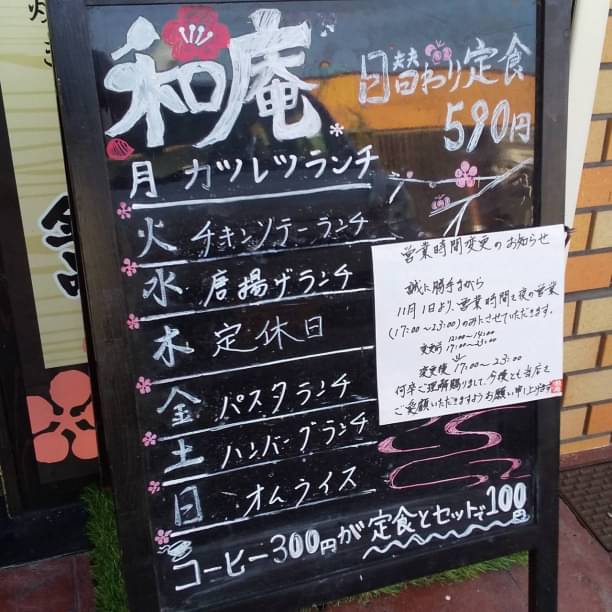 焼き
和庵
日替わり定食
590円
月 カツレツランチ
火 チキンソテーランチ
水 唐揚げランチ
木 定休日
金 パスタランチ
土 ハンバーグランチ
日 オムライス
コーヒー300円が定食とセットで100円
営業時間変更のお知らせ
誠に勝手ながら
11月1日より、営業時間を夜の営業
(17:00~23:00)のみとさせていただきます。
変更前 12:00~14:00
17:00~23:00
変更後 17:00~23:00
何卒ご理解賜りまして、今後とも当店を
ご愛顧いただきますようお願い申し上げます